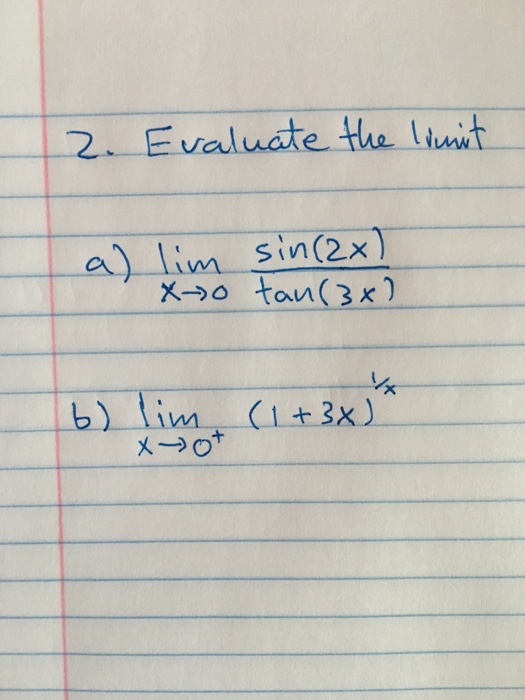 2. Evaluate the limit
a) lim sin(2x)
x→0 tan(3x)
b) lim (1+3x)^1/x
x→0+